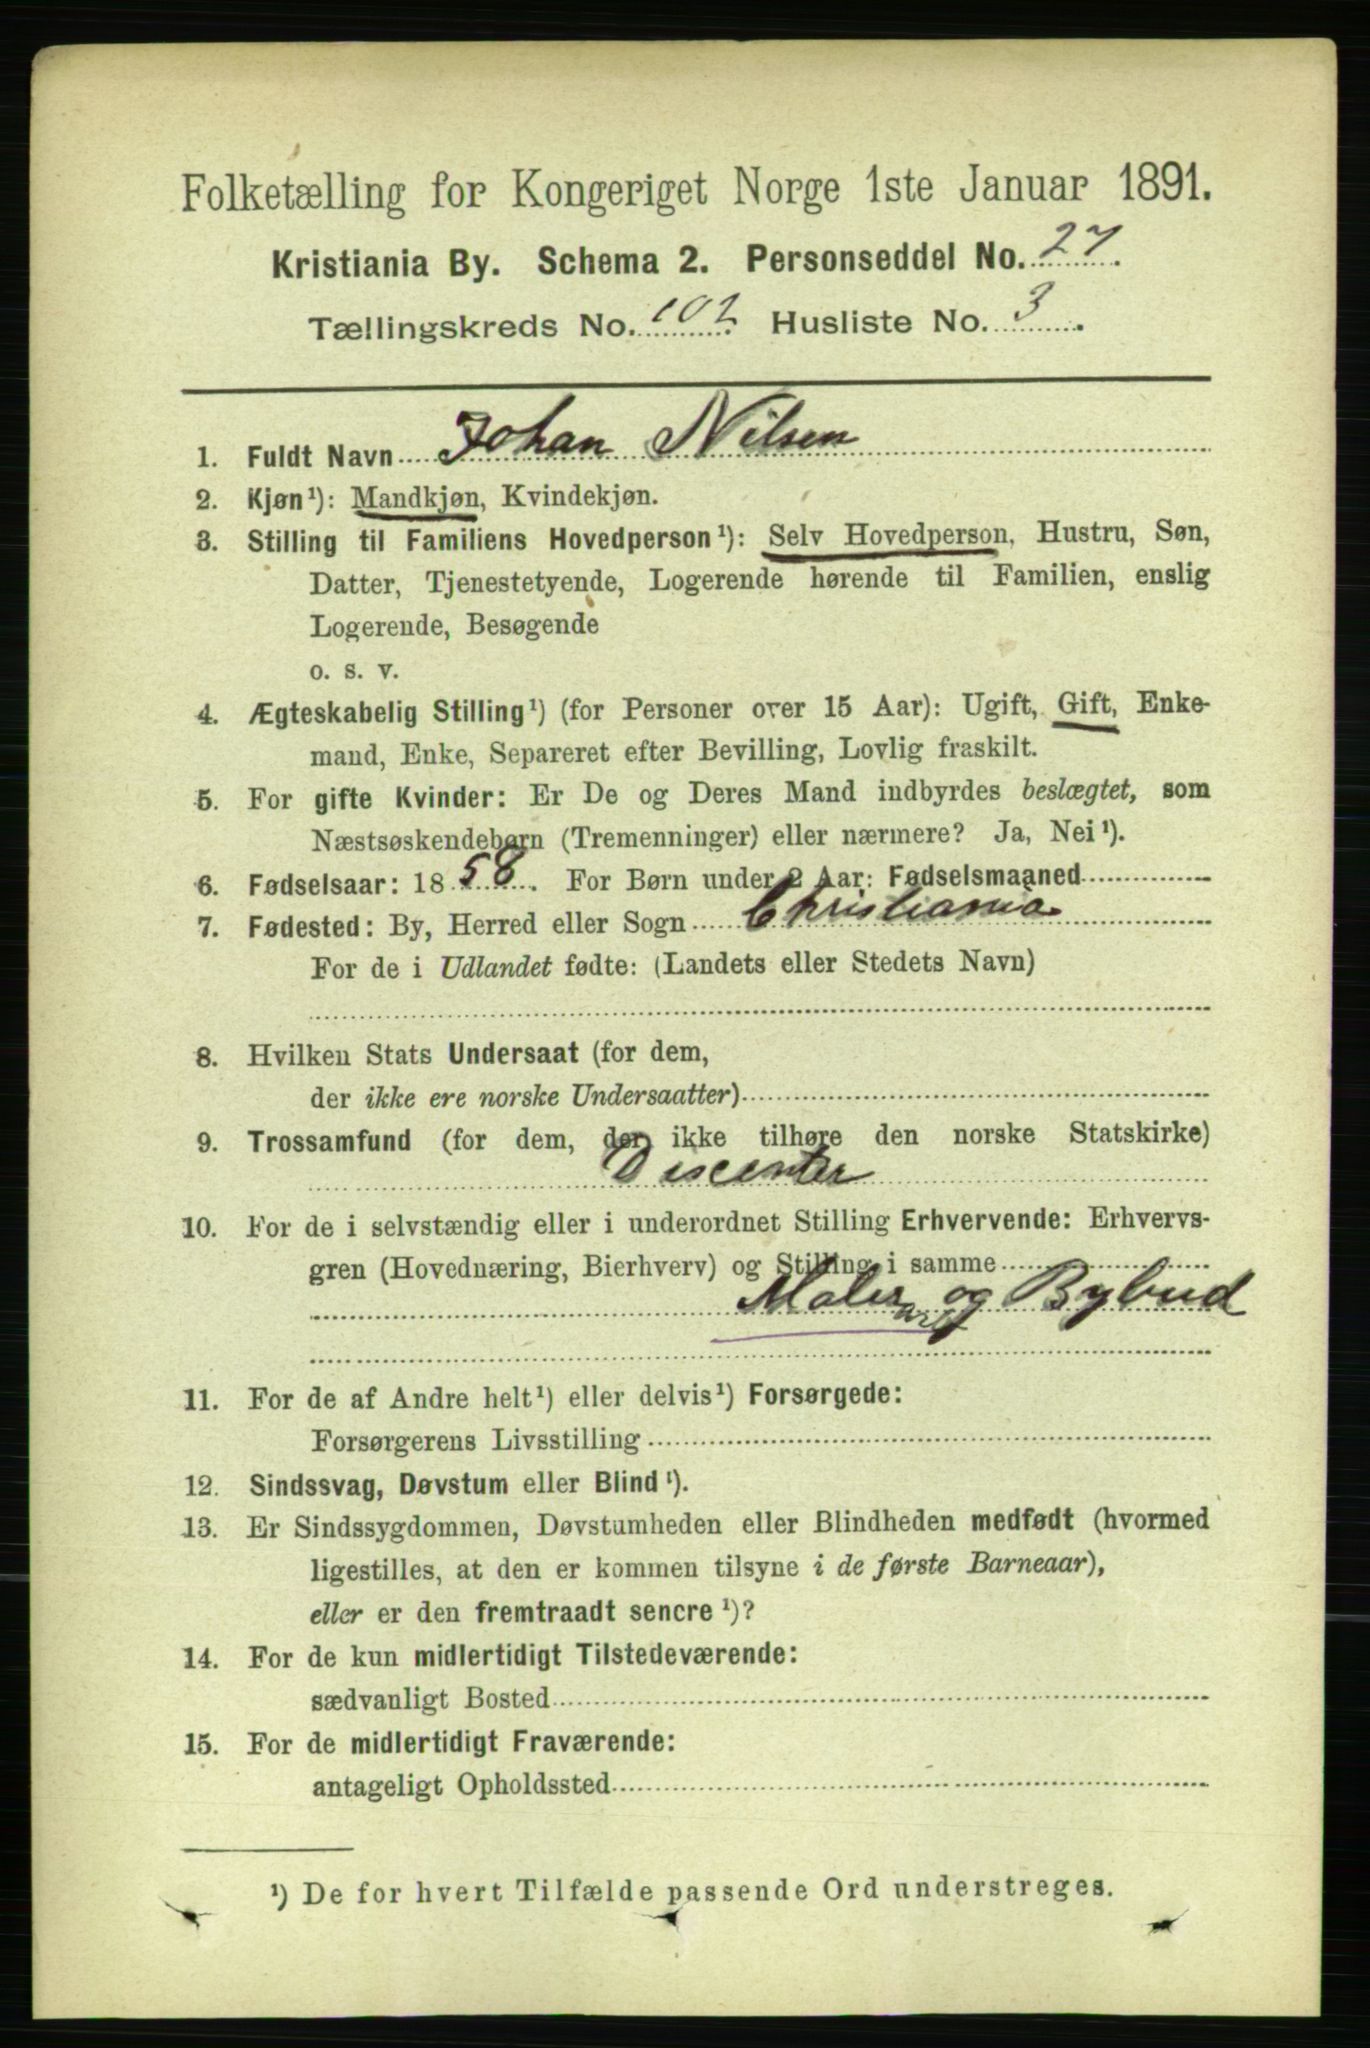 Folketælling for Kongeriget Norge 1ste Januar 1891.
Kristiania By. Schema 2. Personseddel No. 27.
Tællingskreds No. 102. Husliste No. 3.
1. Fuldt Navn Johan Nilsen
2. Kjøn¹): Mandkjøn, Kvindekjøn.
3. Stilling til Familiens Hovedperson¹): Selv Hovedperson, Hustru, Søn,
Datter, Tjenestetyende, Logerende hørende til Familien, enslig
Logerende, Besøgende
o. s. v.
4. Ægteskabelig Stilling¹) (for Personer over 15 Aar): Ugift, Gift, Enke-
mand, Enke, Separeret efter Bevilling, Lovlig fraskilt.
5. For gifte Kvinder: Er De og Deres Mand indbyrdes beslægtet, som
Næstsøskendebørn (Tremenninger) eller nærmere? Ja, Nei¹).
6. Fødselsaar: 1858. For Børn under 2 Aar: Fødselsmaaned
7. Fødested: By, Herred eller Sogn Christiania
For de i Udlandet fødte: (Landets eller Stedets Navn)
8. Hvilken Stats Undersaat (for dem,
der ikke ere norske Undersaatter)
9. Trossamfund (for dem, der ikke tilhøre den norske Statskirke)
Discenter
10. For de i selvstændig eller i underordnet Stilling Erhvervende: Erhvervs-
gren (Hovednæring, Bierhverv) og Stilling i samme
Maler og Bybud
11. For de af Andre helt¹) eller delvis¹) Forsørgede:
Forsørgerens Livsstilling
12. Sindssvag, Døvstum eller Blind¹).
13. Er Sindssygdommen, Døvstumheden eller Blindheden medfødt (hvormed
ligestilles, at den er kommen tilsyne i de første Barneaar),
eller er den fremtraadt senere¹)?
14. For de kun midlertidigt Tilstedeværende:
sædvanligt Bosted
15. For de midlertidigt Fraværende:
antageligt Opholdssted
¹) De for hvert Tilfælde passende Ord understreges.